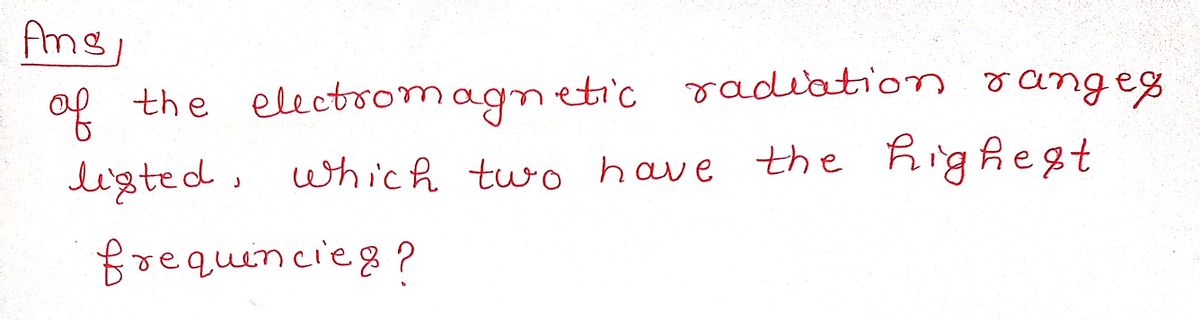 Ans,
of the electromagnetic radiation ranges
listed, which two have the highest
frequencies?